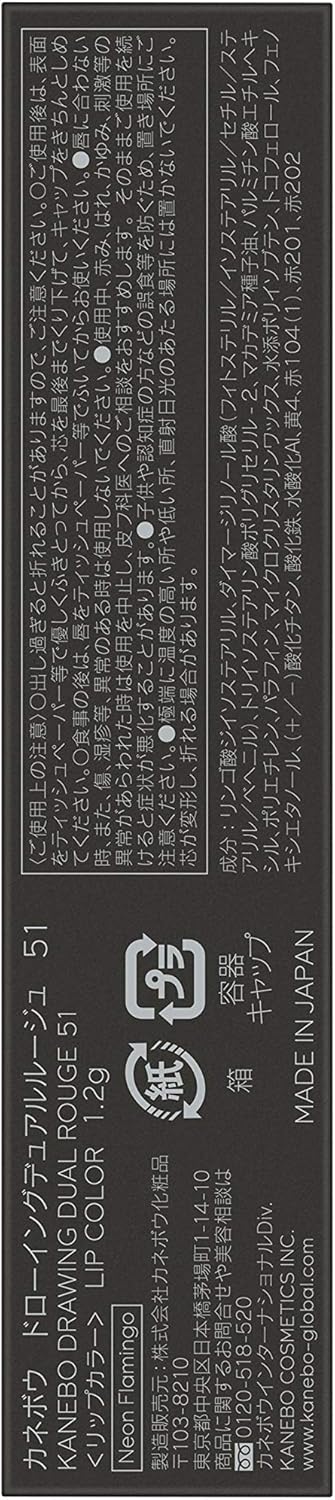 カネボウ ドローイングデュアルルージュ 51
KANEBO DRAWING DUAL ROUGE 51
<リップカラー> LIP COLOR 1.2g
Neon Flamingo
製造販売元:株式会社カネボウ化粧品
〒103-8210
東京都中央区日本橋茅場町1-14-10
商品に関するお問合せや美容相談は
0120-518-520
カネボウインターナショナルDiv.
KANEBO COSMETICS INC.
www.kanebo-global.com
紙
箱
プラ
容器
キャップ
MADE IN JAPAN
〈ご使用上の注意〉○出し過ぎると折れることがありますので、ご注意ください。○ご使用後は、表面
をティッシュペーパー等で優しくふきとってから、芯を最後までくり下げて、キャップをきちんとしめ
てください。○食事の後は、唇をティッシュペーパー等でふいてからお使いください。●唇に合わない
時、また、傷、湿疹等、異常のある時は使用しないでください。●使用中、赤み、はれ、かゆみ、刺激等の
異常があらわれた時は使用を中止し、皮フ科医へのご相談をおすすめします。そのままご使用を続
けると症状が悪化することがあります。●子供や認知症の方などの誤食等を防ぐため、置き場所にご
注意ください。●極端に温度の高い所や低い所、直射日光のあたる場所には置かないでください。
芯が変形し、折れる場合があります。
成分:リンゴ酸ジイソステアリル、ダイマージリノール酸(フィトステリル/イソステアリル/セチル/ステ
アリル/ベヘニル)、トリイソステアリン酸ポリグリセリル-2、マカデミア種子油、パルミチン酸エチルヘキ
シル、ポリエチレン、パラフィン、マイクロクリスタリンワックス、水添ポリイソブテン、トコフェロール、フェノ
キシエタノール、(+/-)酸化チタン、酸化鉄、水酸化Al、黄4、赤104(1)、赤201、赤202